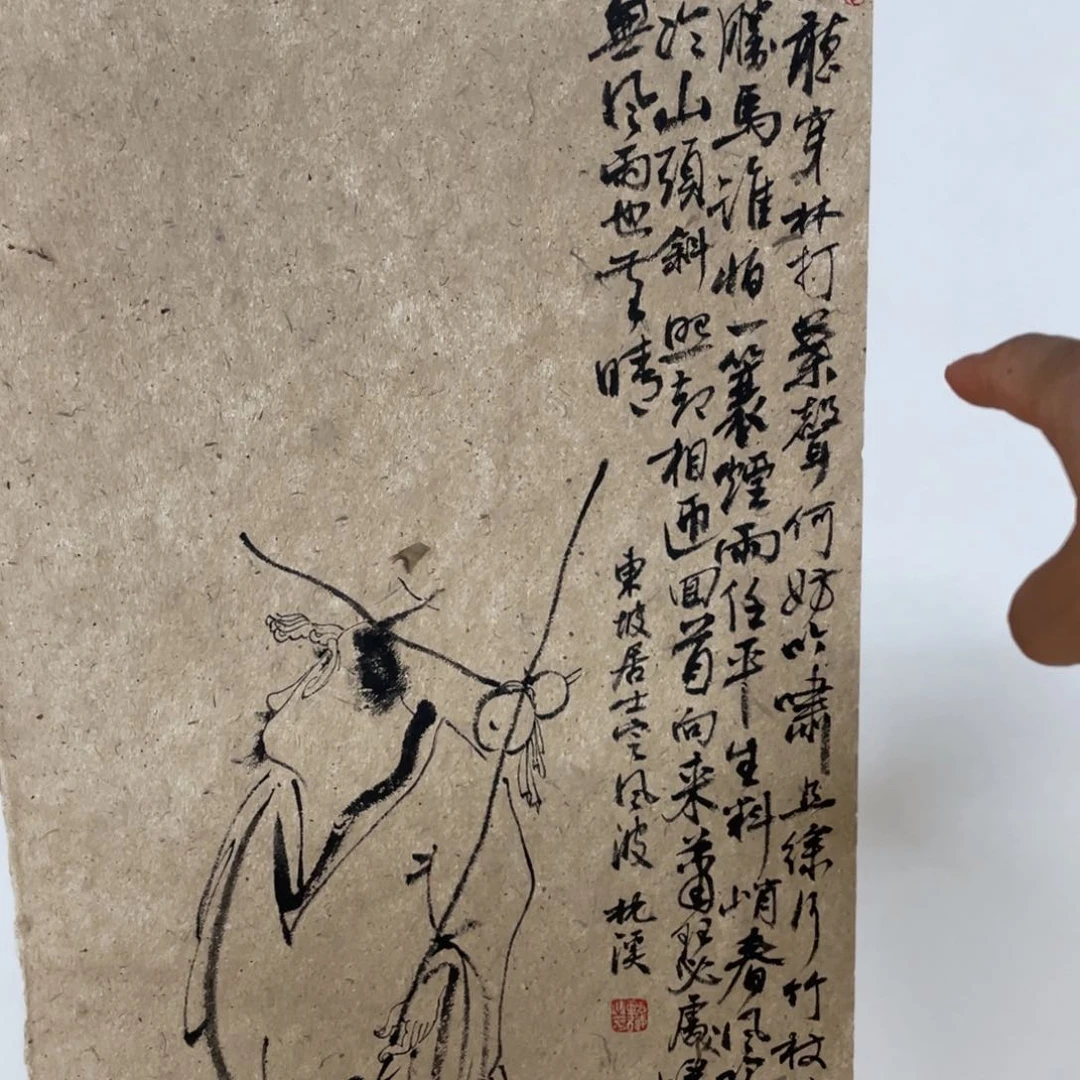 聽穿林打葉聲何妨吟嘯且徐行竹杖
勝馬誰怕一簑煙雨任平生料峭春風
冷山頭斜照却相迎回首向来蕭瑟處
無風雨也无晴
東坡居士定風波 枕溪